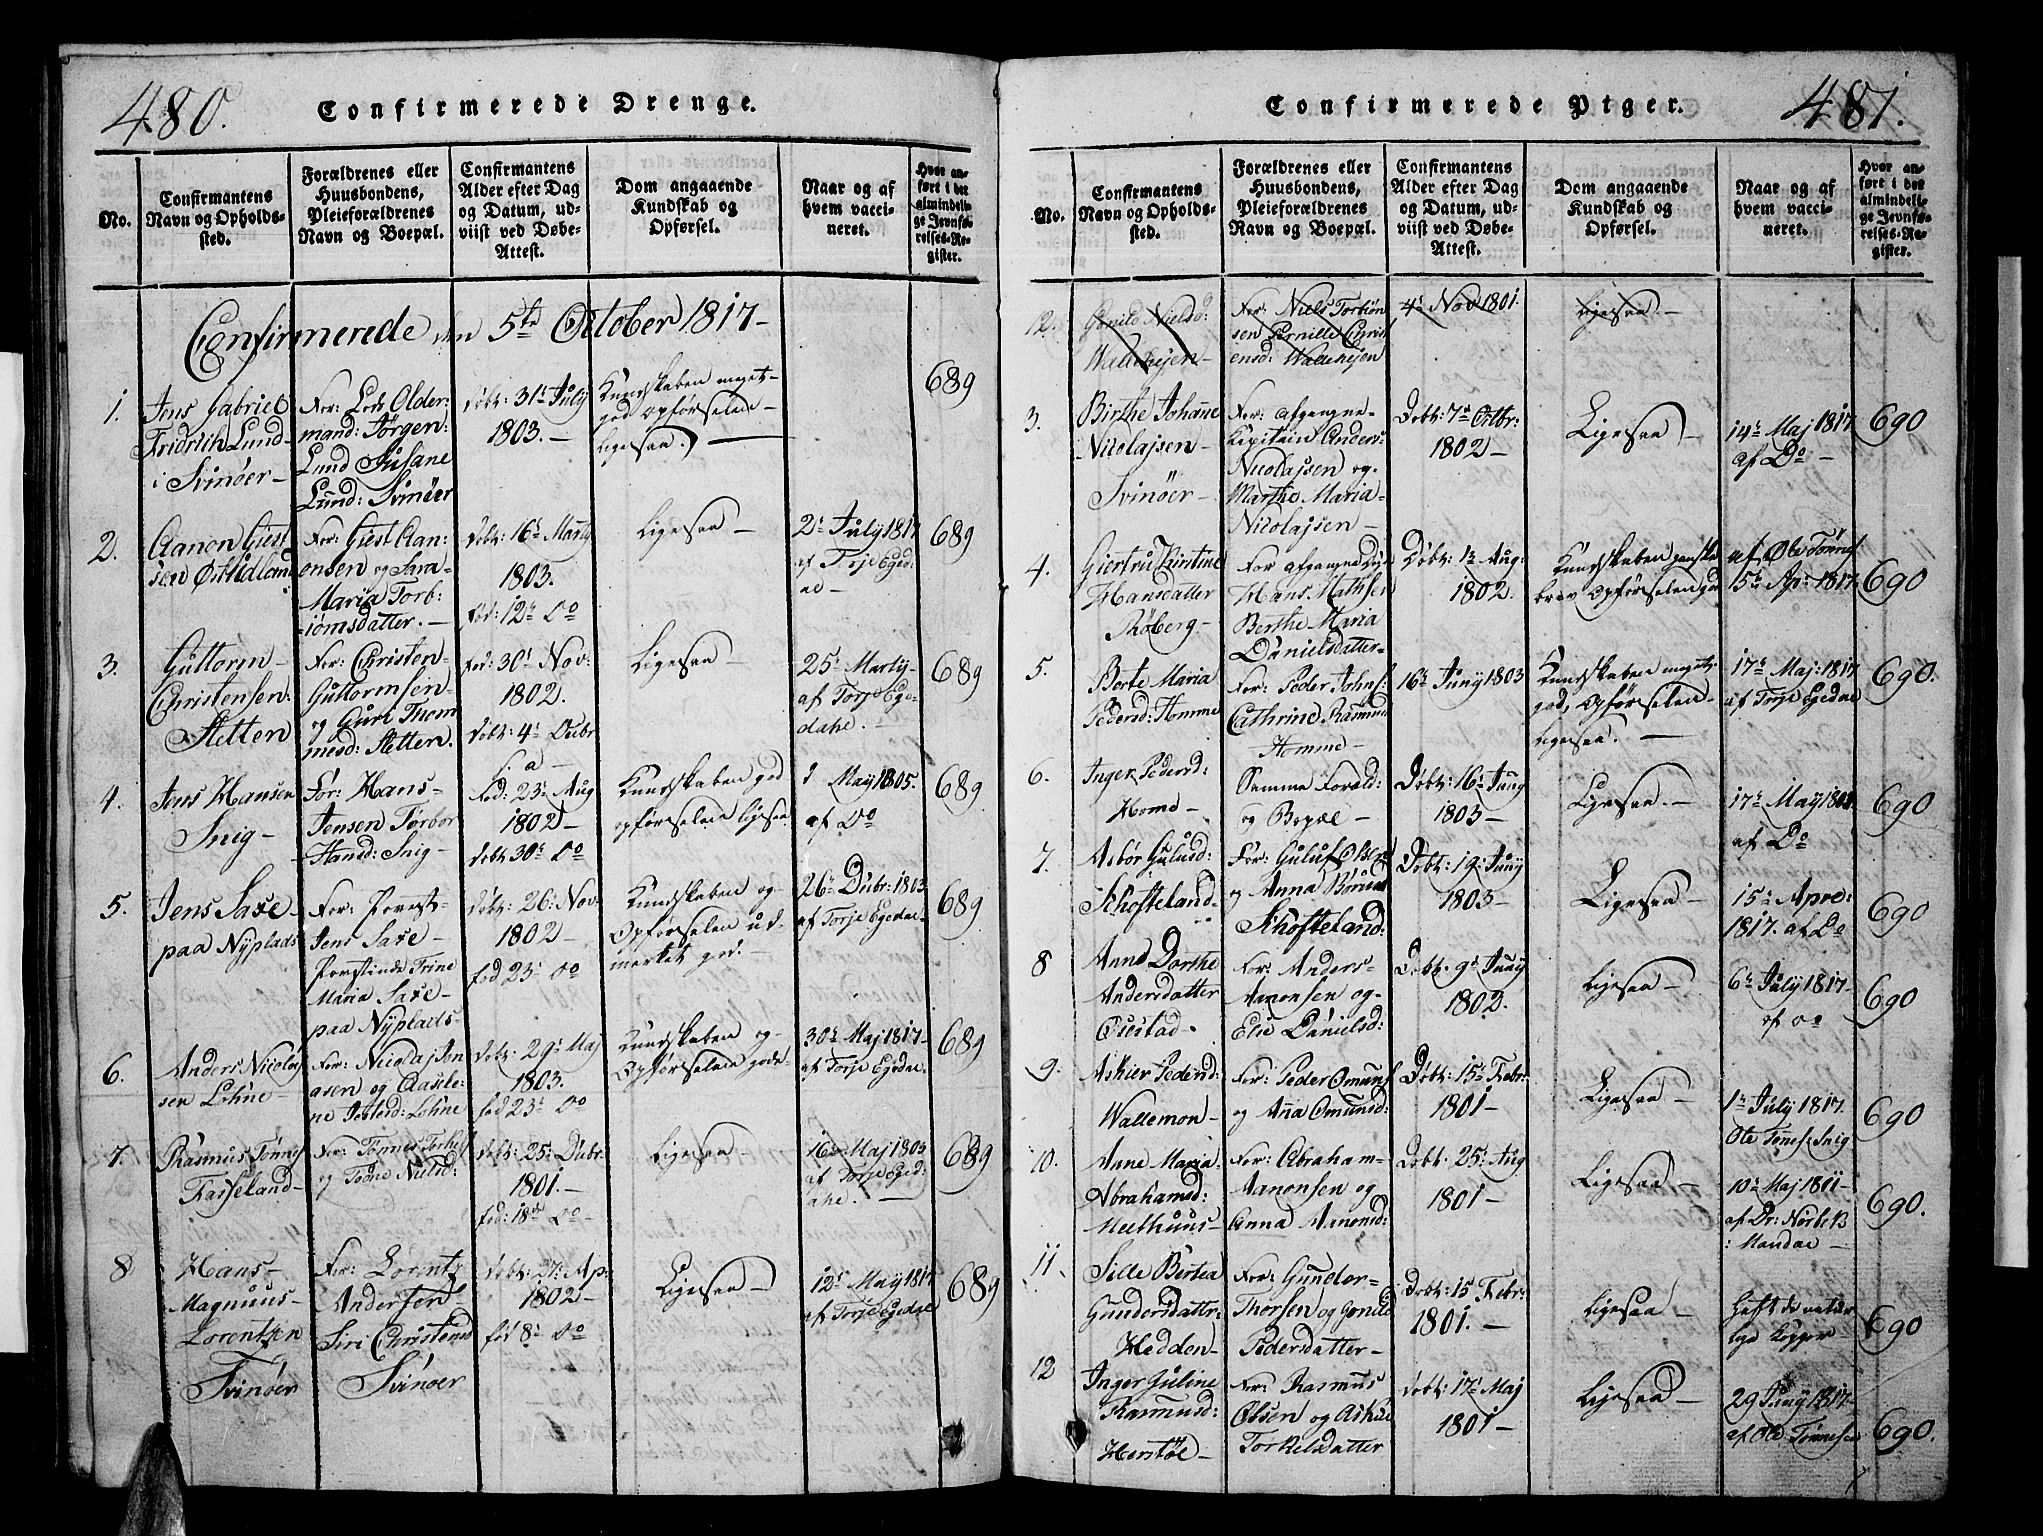 480.
Confirmerede Drenge.
No.
Confirmantens
Navn og Opholds-
sted.
Forældrenes eller
Huusbondens,
Pleieforældrenes
Navn og Boepæl.
Confirmantens
Alder efter Dag
og Datum, ud-
viist ved Døbe-
Attest.
Dom angaaende
Kundskab og
Opførsel.
Naar og af
hvem vacci-
neret.
Hvor an-
ført i det
almindeli-
ge Jevnfø-
relses-Re-
gister.
Confirmerede den 5te October 1817-
1.
Jens Gabriel
Fridrich Lund-
i Svinøer-
For: Lods Older-
mand: Jørgen
Lund Susane
Lund: Svinøer
Døbt: 31te July
1803.-
Kundskaben meget-
god Opførselen-
ligesaa.
689
2.
Aanon Giest
sen Østudland
For: Giest Aan-
onsen og Sara-
Maria Torb-
iørnsdatter.-
Døbt: 16de Marty
1803.
Fød: 12te Do
Ligesaa-
2den July 1817
af Torje Eged-
al-
689
3.
Guttorm-
Christensen:
Stetten
For: Christen-
Guttormsen-
og Guri Thom
mesd: Stetten.
Fød: 30te Nov:
1802.
Døbt: 4de Dcbr
s. a-
Ligesaa-
25de Marty-
af Torje Ege-
dahl.-
689
4.
Jens Hansen
Snig-
For: Hans-
Jensen Torbor
Hansd: Snig-
Fød: 23de Aug
1802-
Døbt 30te Do
Kundskaben god
opførselen ligesaa
May 1805.
af Do
689
5.
Jens Saxe-
paa Nyplads
For: Provst-
Jens Saxe-
Provstinde Trine
Maria Saxe-
paa Nyplads-
Døbt: 26: Nov-
1802-
fød 23de Do
Kundskaben og
Opførselen ud-
mærket god.-
26de Dcbr: 1803
af Torje Egedal-
689
6.
Anders Nicolaj
sen Lohne-
For: Nicolaj Jen
Døbt: 29de Maj
1803.
fød 23de Do
Kundskaben og-
Opførselen gode-
30te Maj 1817-
af Torje Egedal.
689
7.
Rasmus Tønnes
Tasseland-
For: Tønnes
Døbt: 25: Dcbr
1801.-
fød: 18de Do-
Ligesaa-
16de Maj 1803
af Torje Eged:
ahl.-
689
8
Hans-
Magnuus-
Lorentzen
Svinøer
For: Lorentz
Andersen
Siri Christensd
Svinøer
Døbt: 27: Ap:
1802-
fød 8de Do
Ligesaa-
12te May 1817
af Torje Egedal
689
Confirmerede Piger.
481.
No.
Confirmantens
Navn og Opholds-
sted.
Forældrenes eller
Huusbondens,
Pleieforældrenes
Navn og Boepæl.
Confirmantens
Alder efter Dag
og Datum, ud-
viist ved Døbe-
Attest.
Dom angaaende
Kundskab og
Opførsel.
Naar og af
hvem vacci-
neret.
Hvor an-
ført i det
almindeli-
ge Jevnfø-
relses-Re-
gister.
12.
Gonild Nielsd:
For: Niels Torbiørn
sen Pernille Christ
ensd:
4de Nov 1801.
Ligesaa-
3.
Birthe Johanne
Nicolajsen-
Svinøer-
For: afgangne-
Capitain Anders
Nicolajsen og-
Marthe Maria-
Nicolajsen-
Døbt: 7de Octbr:
1802-
Ligesaa-
14de Maj 1817
af Do-
690
4.
Giertru Kirstine
Hansdatter
Røberg-
For afgangne
Hans Mathsen
Berthe Maria
Danielsdatter-
Døbt: 1te Aug:
1802.
Kundskaben ganske
brav Opførselen god
af Ole Tønnes
15de Ap: 1817.
690
5.
Berte Maria
Pedersd: Homme
For: Peder Johns
Cathrine Rasmusd
Homme-
16de Juny 1803
Kundskaben meget
god, Opførselen-
ligesaa.-
17de Maj: 1817
af Torje Egedal
690.
6.
Inger Pedersd:
Home-
Samme Foræld:
og Bopæl-
Døbt: 16de Juny
1803-
Ligesaa.-
17de May
af Do
690
7.
Asbør Gulusd:
Schofteland-
For: Guluf Olsen
og Anna
Schofteland:
Døbt: 19de Juny
1803-
Ligesaa-
15de Apre:
1817. af Do
690
8
Anne Dorthe
Andersdatter
Øiestad-
For: Anders-
Aanonsen og-
Elie Danielsd:
Døbt: 9de Juny
1802.
Ligesaa-
6te July 1817-
af Do
690
9.
Askier Pedersd:
Wallemon-
For: Peder Omunds
og Anna Omundsd:
Døbt: 15de Febr:
1801-
Ligesaa-
1te July 1817.
Ole Tønnes: Snig
690
10.
Anne Maria-
Abrahamsd:
Meelhuus-
For: Abraham-
Aanonsen og
Anna Aanonsd:
Døbt: 25de Aug
1801-
Ligesaa-
10de Maj 1811-
af Dr: Norbek
: Mandal-
690.
11.
Sille Bertea
Gundersdattr
Hedden-
For: Gunder-
Thorsen og Gonild
Pedersdatter-
Døbt: 15 Febr:
1801.-
Ligesaa-
Haft de natur
lige Kopper
690
12
Inger Guline
Rasmusd:
Herstøl-
For: Rasmus
Olsen og Askier
Torkelsdatter
Døbt: 17de Maj
1801-
Ligesaa-
29 Juny 1817-
af Ole Tønnesen
690.